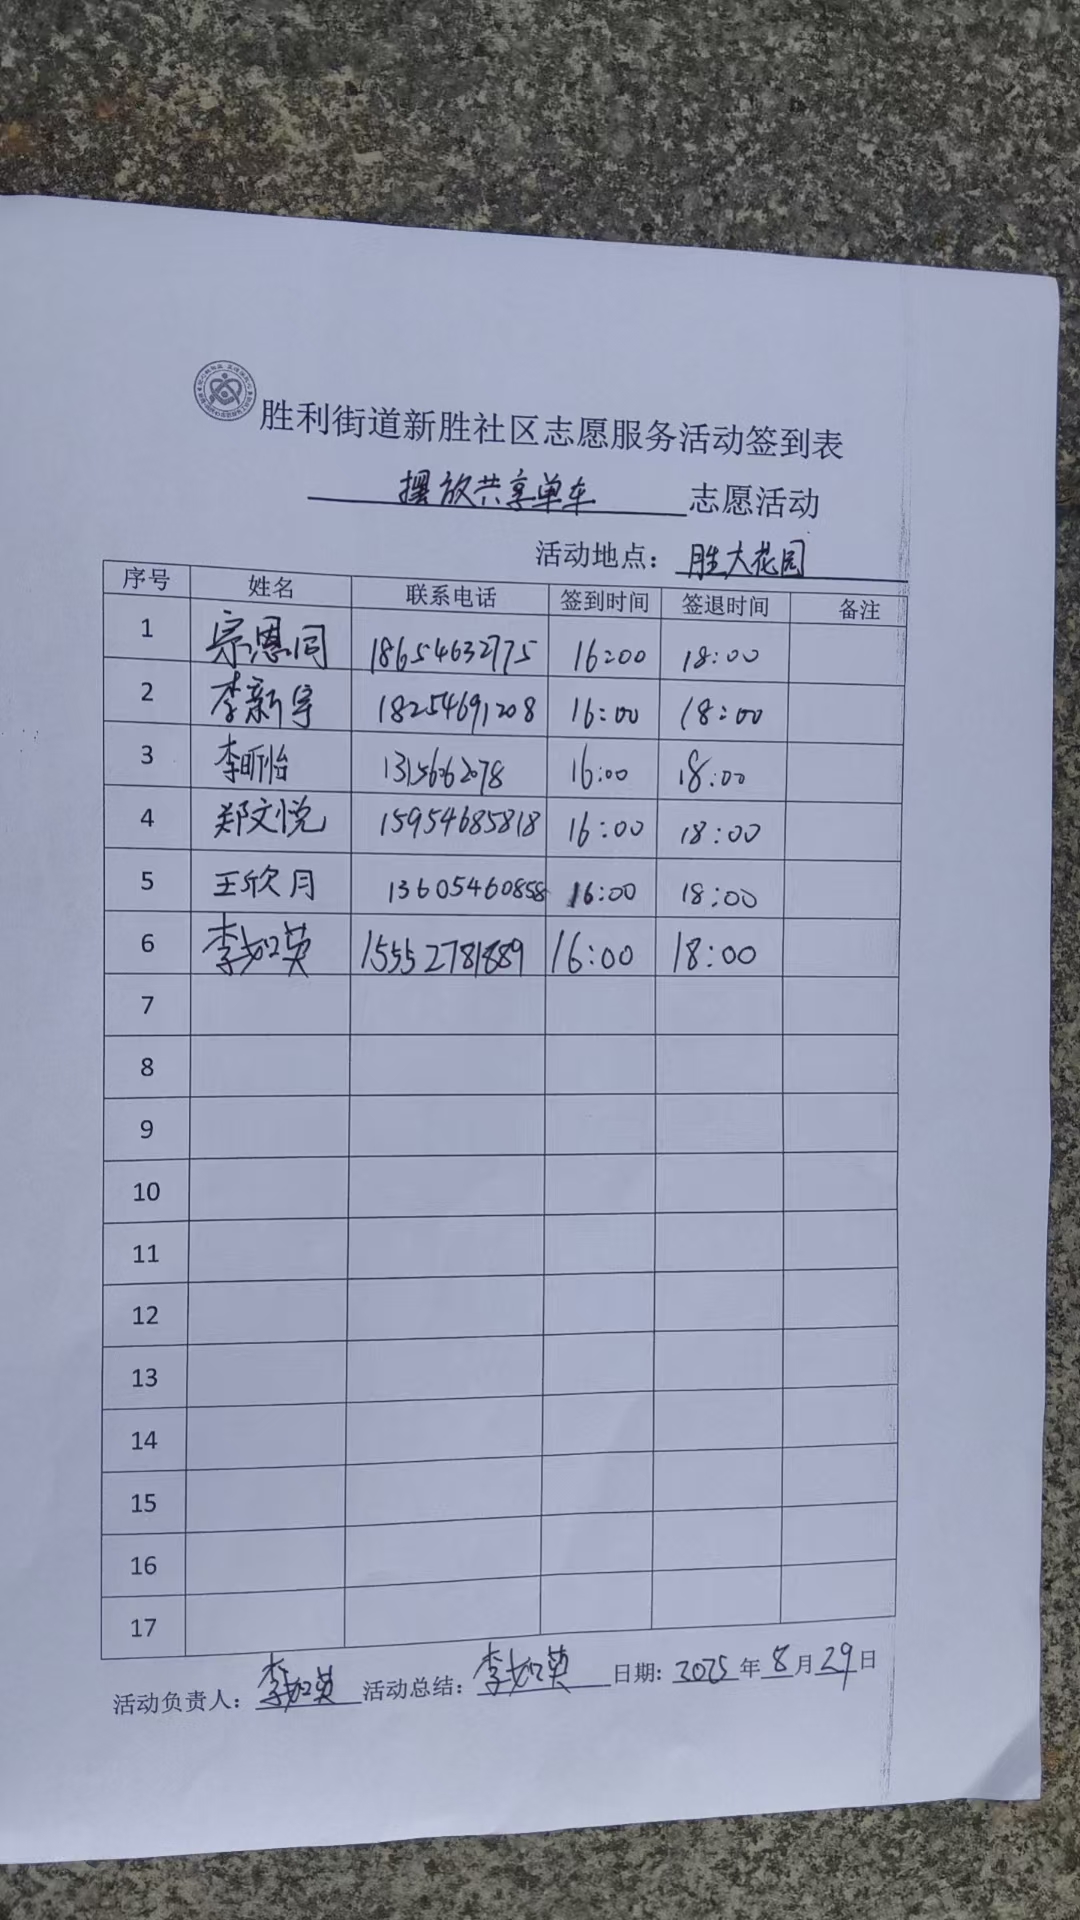 胜利街道新胜社区志愿服务活动签到表
摆放共享单车 志愿活动
活动地点：胜大花园
序号 姓名 联系电话 签到时间 签退时间 备注
1 宗恩同 18654632775 16:00 18:00
2 李新宇 18254691208 16:00 18:00
3 李昕怡 16:00 18:00
4 郑文悦 15954685818 16:00 18:00
5 王欣月 13605460858 16:00 18:00
6 李如英 15552781889 16:00 18:00
7
8
9
10
11
12
13
14
15
16
17
活动负责人：李如英 活动总结：李如英 日期：2025年8月29日